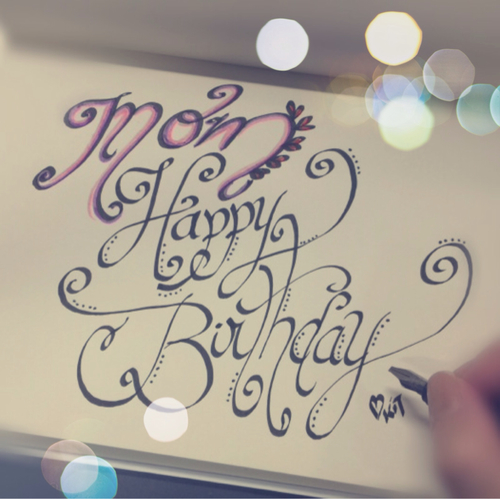 Mom
Happy
Birthday